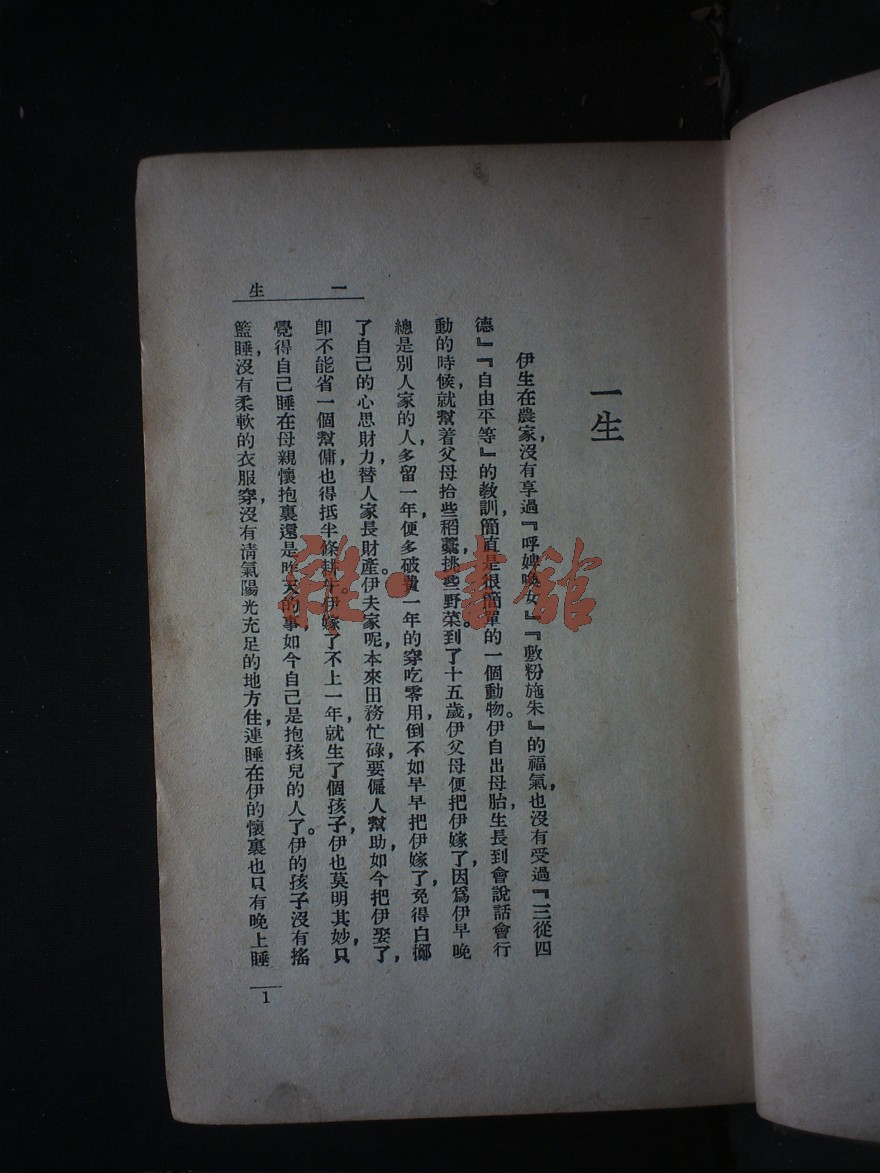 一生
伊生在農家，沒有享過『呼婢喚女』『敷粉施朱』的福氣，也沒有受過『三從四
德』『自由平等』的教訓，簡直是很簡單的一個動物。伊自出母胎，生長到會說話會行
動的時候，就幫着父母拾些稻藁，挑些野菜。到了十五歲，伊父母便把伊嫁了，因爲伊早晚
總是別人家的人，多留一年，便多破費一年的穿吃零用，倒不如早早把伊嫁了，免得白擲
了自己的心思財力，替人家長財產。伊夫家呢，本來田務忙碌，要僱人幫助，如今把伊娶了，
卽不能省一個幫傭，也得抵半條耕牛。伊嫁了不上一年，就生了個孩子，伊也莫明其妙，只
覺得自己睡在母親懷抱裏還是昨天的事，如今自己是抱孩兒的人了。伊的孩子沒有搖
籃睡，沒有柔軟的衣服穿，沒有淸氣陽光充足的地方住，連睡在伊的懷裏也只有晚上睡
一生
1
雜·書館